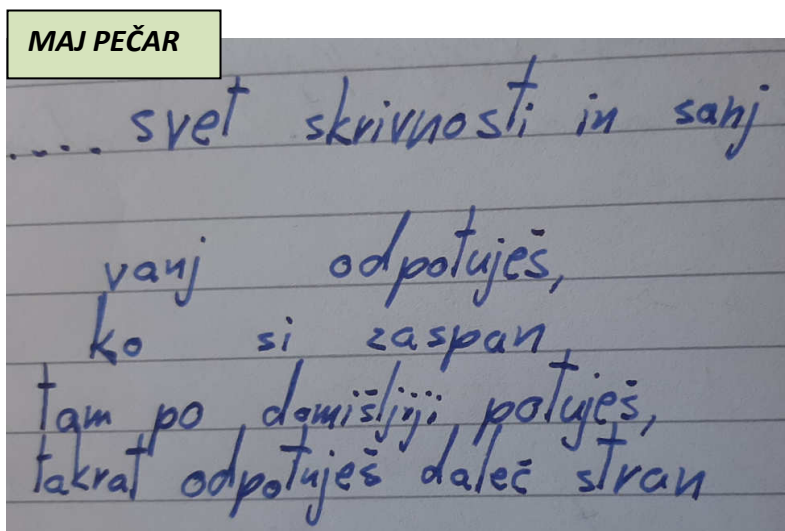 MAJ PEČAR
.... svet skrivnosti in sanj
vanj odpotuješ,
ko si zaspan,
tam po domišljiji potuješ,
takrat odpotuješ daleč stran